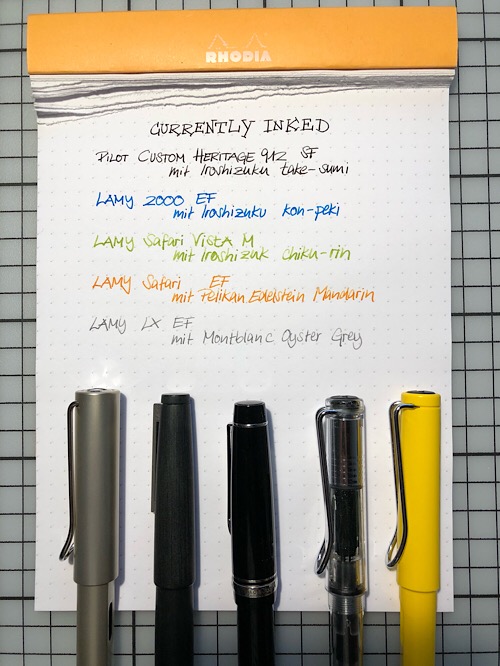 RHODIA
CURRENTLY INKED
PILOT CUSTOM HERITAGE 912 SF
mit Iroshizuku take-sumi
LAMY 2000 EF
mit Iroshizuku kon-peki
LAMY Safari VistA M
mit Iroshizuk chiku-rin
LAMY Safari EF
mit Pelikan Edelstein Mandarin
LAMY LX EF
mit Montblanc Oyster Grey